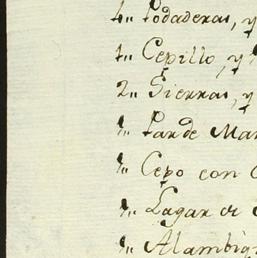 4,, Podaderas, y
1,, Cepillo, y
2,, Sierras, y
1,, Par de
1,, Cepo con
1,, Lagar
1,,